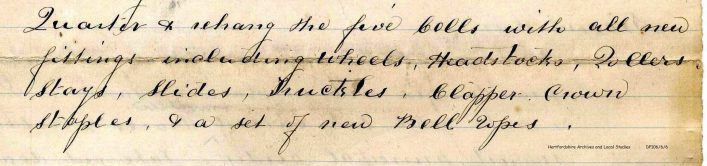 Quarter & rehang the five bells with all new
fittings including wheels, Headstocks, Rollers.
Stays, Slides, Truckles, Clapper Crown
Staples, & a set of new Bell Ropes.
Hertfordshire Archives and Local Studies DP/306/6/6